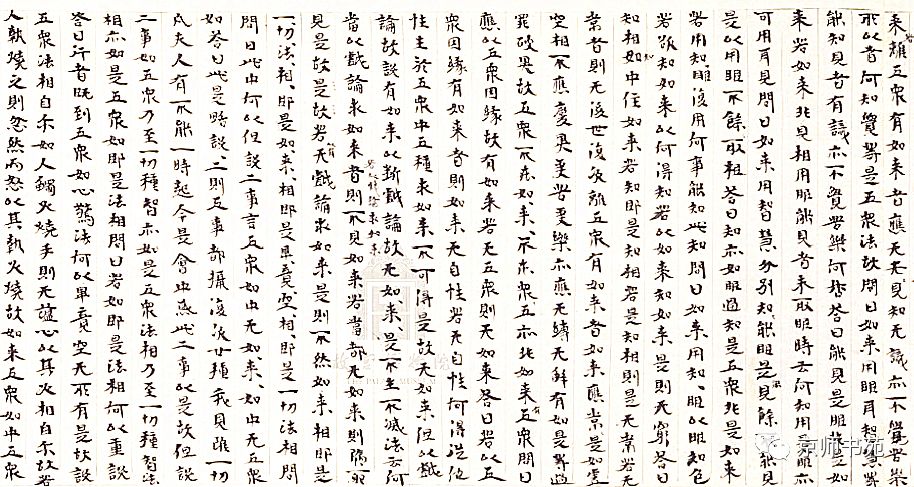 来離五衆有如来者應无見知无識亦不覺苦樂
所以者何知覺等是五衆法故問曰如来用眼耳智慧等
能知見者有識亦不覺苦樂何指答曰能見是眼非是如
来若如来非見相用眼能見者未取眼時云何知用離亦
可用耳見問曰如来用智慧分別知能眼是見餘不能見
是以用眼不餘取相答曰知亦如眼過知是五衆非是如来
若用知眼復用何事能知此知問曰如来用知、眼以眼知色
若欲知如来以何得知若以如来知如来是則无窮答曰
知相如中住如来若知即是知相若是知相則是无常若无
常者則无後世復次離五衆有如来者如来應常是如虚
空相不應變異受苦受樂亦應无縛无解有如是等過
罪破異故五衆不在如来、不在衆五亦非如来五有衆問曰
應以五衆因緣故有如来若无五衆則无如来答曰若以五
衆因緣有如来者則如来无自性若无自性何得從他
性生於五衆中五種求如来不可得是故无如来但以戲
論故說有如来以斷戲論故无如来、是不生不滅法云何
當以戲論求如来若以戲論求如来者則不見如来若當都无如来則隨耶
見是故是故若有无戲論求如来是則不然如来相即是
一切法、相、即是如来、相即是畢竟空、相、即是一切法相問
問曰此中何以但說二事言五衆如中无如来、如中无五衆
如答曰此是略說、二則五事都攝復次廿種我見雖一切
凡夫人有不能一時起今是會中或此二事以是故但說
二事如五衆乃至一切種智亦如是五衆法相乃至一切種智法
相亦如是五衆如即是法相問曰若如即是法相何以重說
答曰行者既到五衆如心驚法何以畢竟空无所有是故說
五衆法相自尔如人觸火燒手則无心以其火相自尔故若
人執燒之則忽然而怒以其執火燒故如来五衆如中五衆
京师书苑